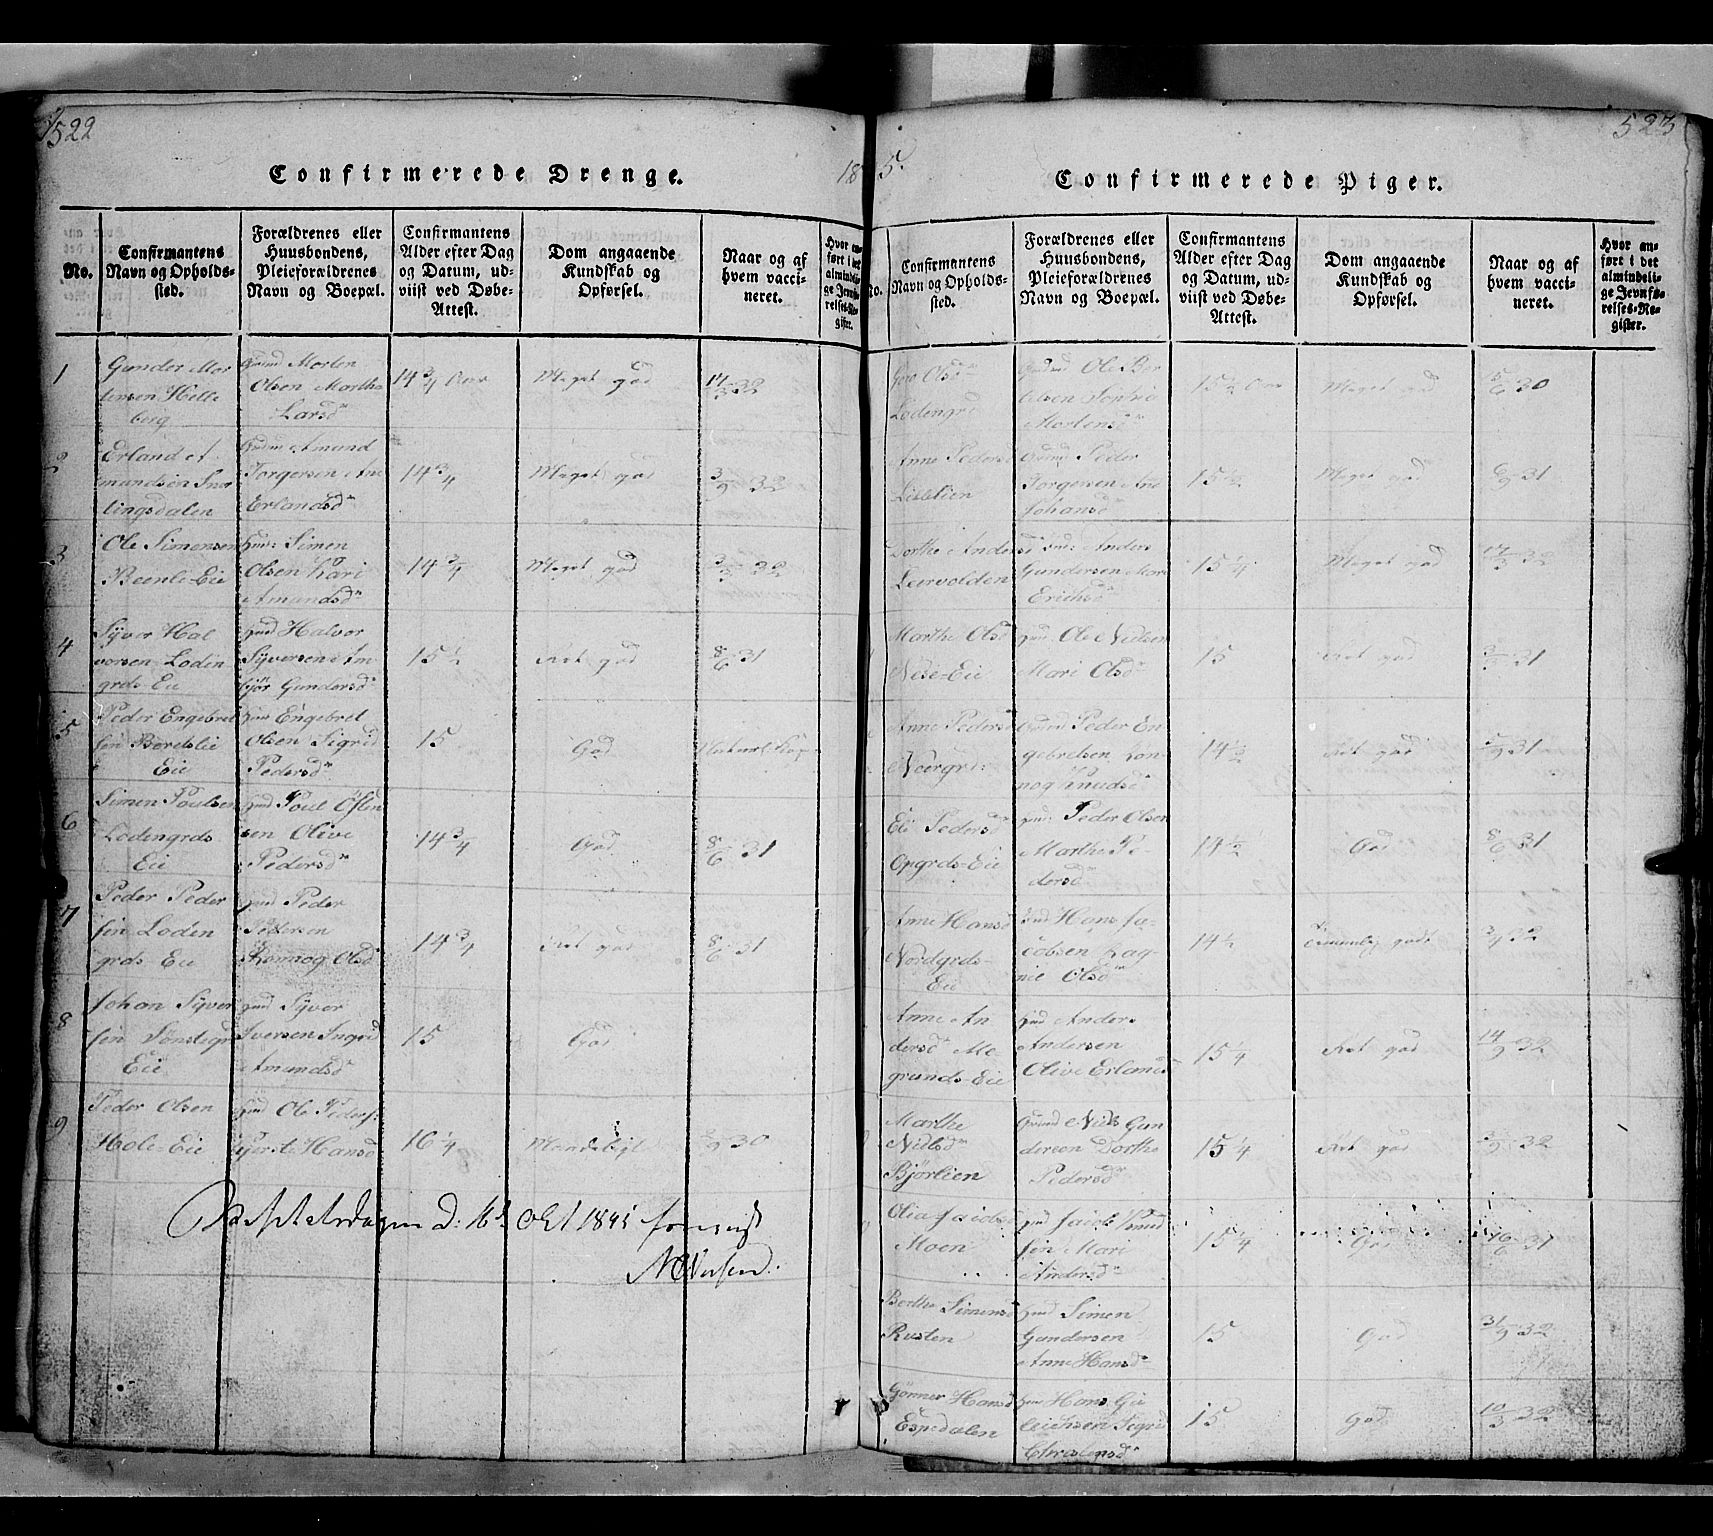 522
Confirmerede Drenge.
No.
Confirmantens Navn og Opholds-sted.
Forældrenes eller Huusbondens, Pleieforældrenes Navn og Boepæl.
Confirmantens Alder efter Dag og Datum, ud-viist ved Døbe-Attest.
Dom angaaende Kundskab og Opførsel.
Naar og af hvem vacci-neret.
Hvor an-ført i det almindeli-ge Jevnfø-relses-Re-gister.
1
Gunder Mor
tensen Helle
berg
Gmd Morten
Olsen Marthe
Larsdr
14 3/4 Aar
Meget god
14/3 32
2
Erland A
mundsen
lingsdalen
Amund
Torgersen Ane
Erlandsdr
14 3/4
Meget god
3/9 32
3
Ole Simensen
Beenli-Eie
Simen
Olsen Kari
Amundsdr
14 3/4
Meget god
32
4
Syver Hal
vorsen Loden
grds-Eie
Hmd Halvor
Syversen Am
bjør Gundersdr
15 1/2
Ret god
8/6 31
5
Peder Engebret
sen
Eie
Hmd Engebret
Olsen Sigrid
Pedersdr
15
God
6
Simen Poulsen
Lodengrds
Eie
Hmd Poul Østen
sen Olive
Pedersdr
14 3/4
God
8/6 31
7
Peder Peder
sen Loden
grds Eie
Hmd Peder
Pedersen
Rønnog Olsd
14 3/4
Ret god
8/6 31
8
Johan Syver
sen
Eie
Hmd Syver
Iversen Ingri
Amundsdr
15
God
9
Peder Olsen
Hole-Eie
Hmd Ole Peders:
Hansd
16 1/4
Maadeligt
30
d: 16d Oct 1845
523
1845.
Confirmerede Piger.
No.
Confirmantens Navn og Opholds-sted.
Forældrenes eller Huusbondens, Pleieforældrenes Navn og Boepæl.
Confirmantens Alder efter Dag og Datum, ud-viist ved Døbe-Attest.
Dom angaaende Kundskab og Opførsel.
Naar og af hvem vacci-neret.
Hvor an-ført i det almindeli-ge Jevnfø-relses-Re-gister.
Olsdr
Lodengrd
Ole Ber
telsen Sophie
Mortensdr
15 1/2 Aar
Meget god
5/6 30
Anne Pedersd
Lislelien
Gmd Peder
Torgersen Ane
Johansd
15 1/2
Meget god
6/9 31
Dorthe Andersd
Leervolden
Anders
Gundersen Mari
Erichsdr
15 1/4
Meget god
14/3 32
Marthe Olsd
Eie
Ole Nielsen
Mari Olsdr
15
Ret god
31
Anne Pedersd
Peder En
gebretsen Røn
nog Knudsdr
14 1/2
Ret god
31
Eli Pedersdr
Opgrds-Eie
Peder Olsen
Marthe Pe-
dersdr
14 1/2
God
8/6 31
Anne Hansd
Nordgrds-
Eie
Hmd Hans Ja-
cobsen Rag-
nil Olsdr
14 1/2
Temmelig godt
3/9 32
Anne An
dersdr Mo-
grunds-Eie
Hmd Anders
Andersen
Olive Erlandsd
15 1/4
Ret god
14/9 32
Marthe
Nielsdr
Bjørlien
Gmd Niels Gun
dersen Dorthe
Pedersdr
15 1/4
Ret god
3/9 32
Olia Jacobsd
Moen
Jacob Knud
sen Mari
Andersdr
15 1/4
God
16/6 31
Berthe Simensd
Rusten
Hmd Simen
Gundersen
Anne Hansdr
15
God
32
Gønner Hansd
Espedalen
Hans Gu
Sigrid
Christensdr
15
God
10/3 32